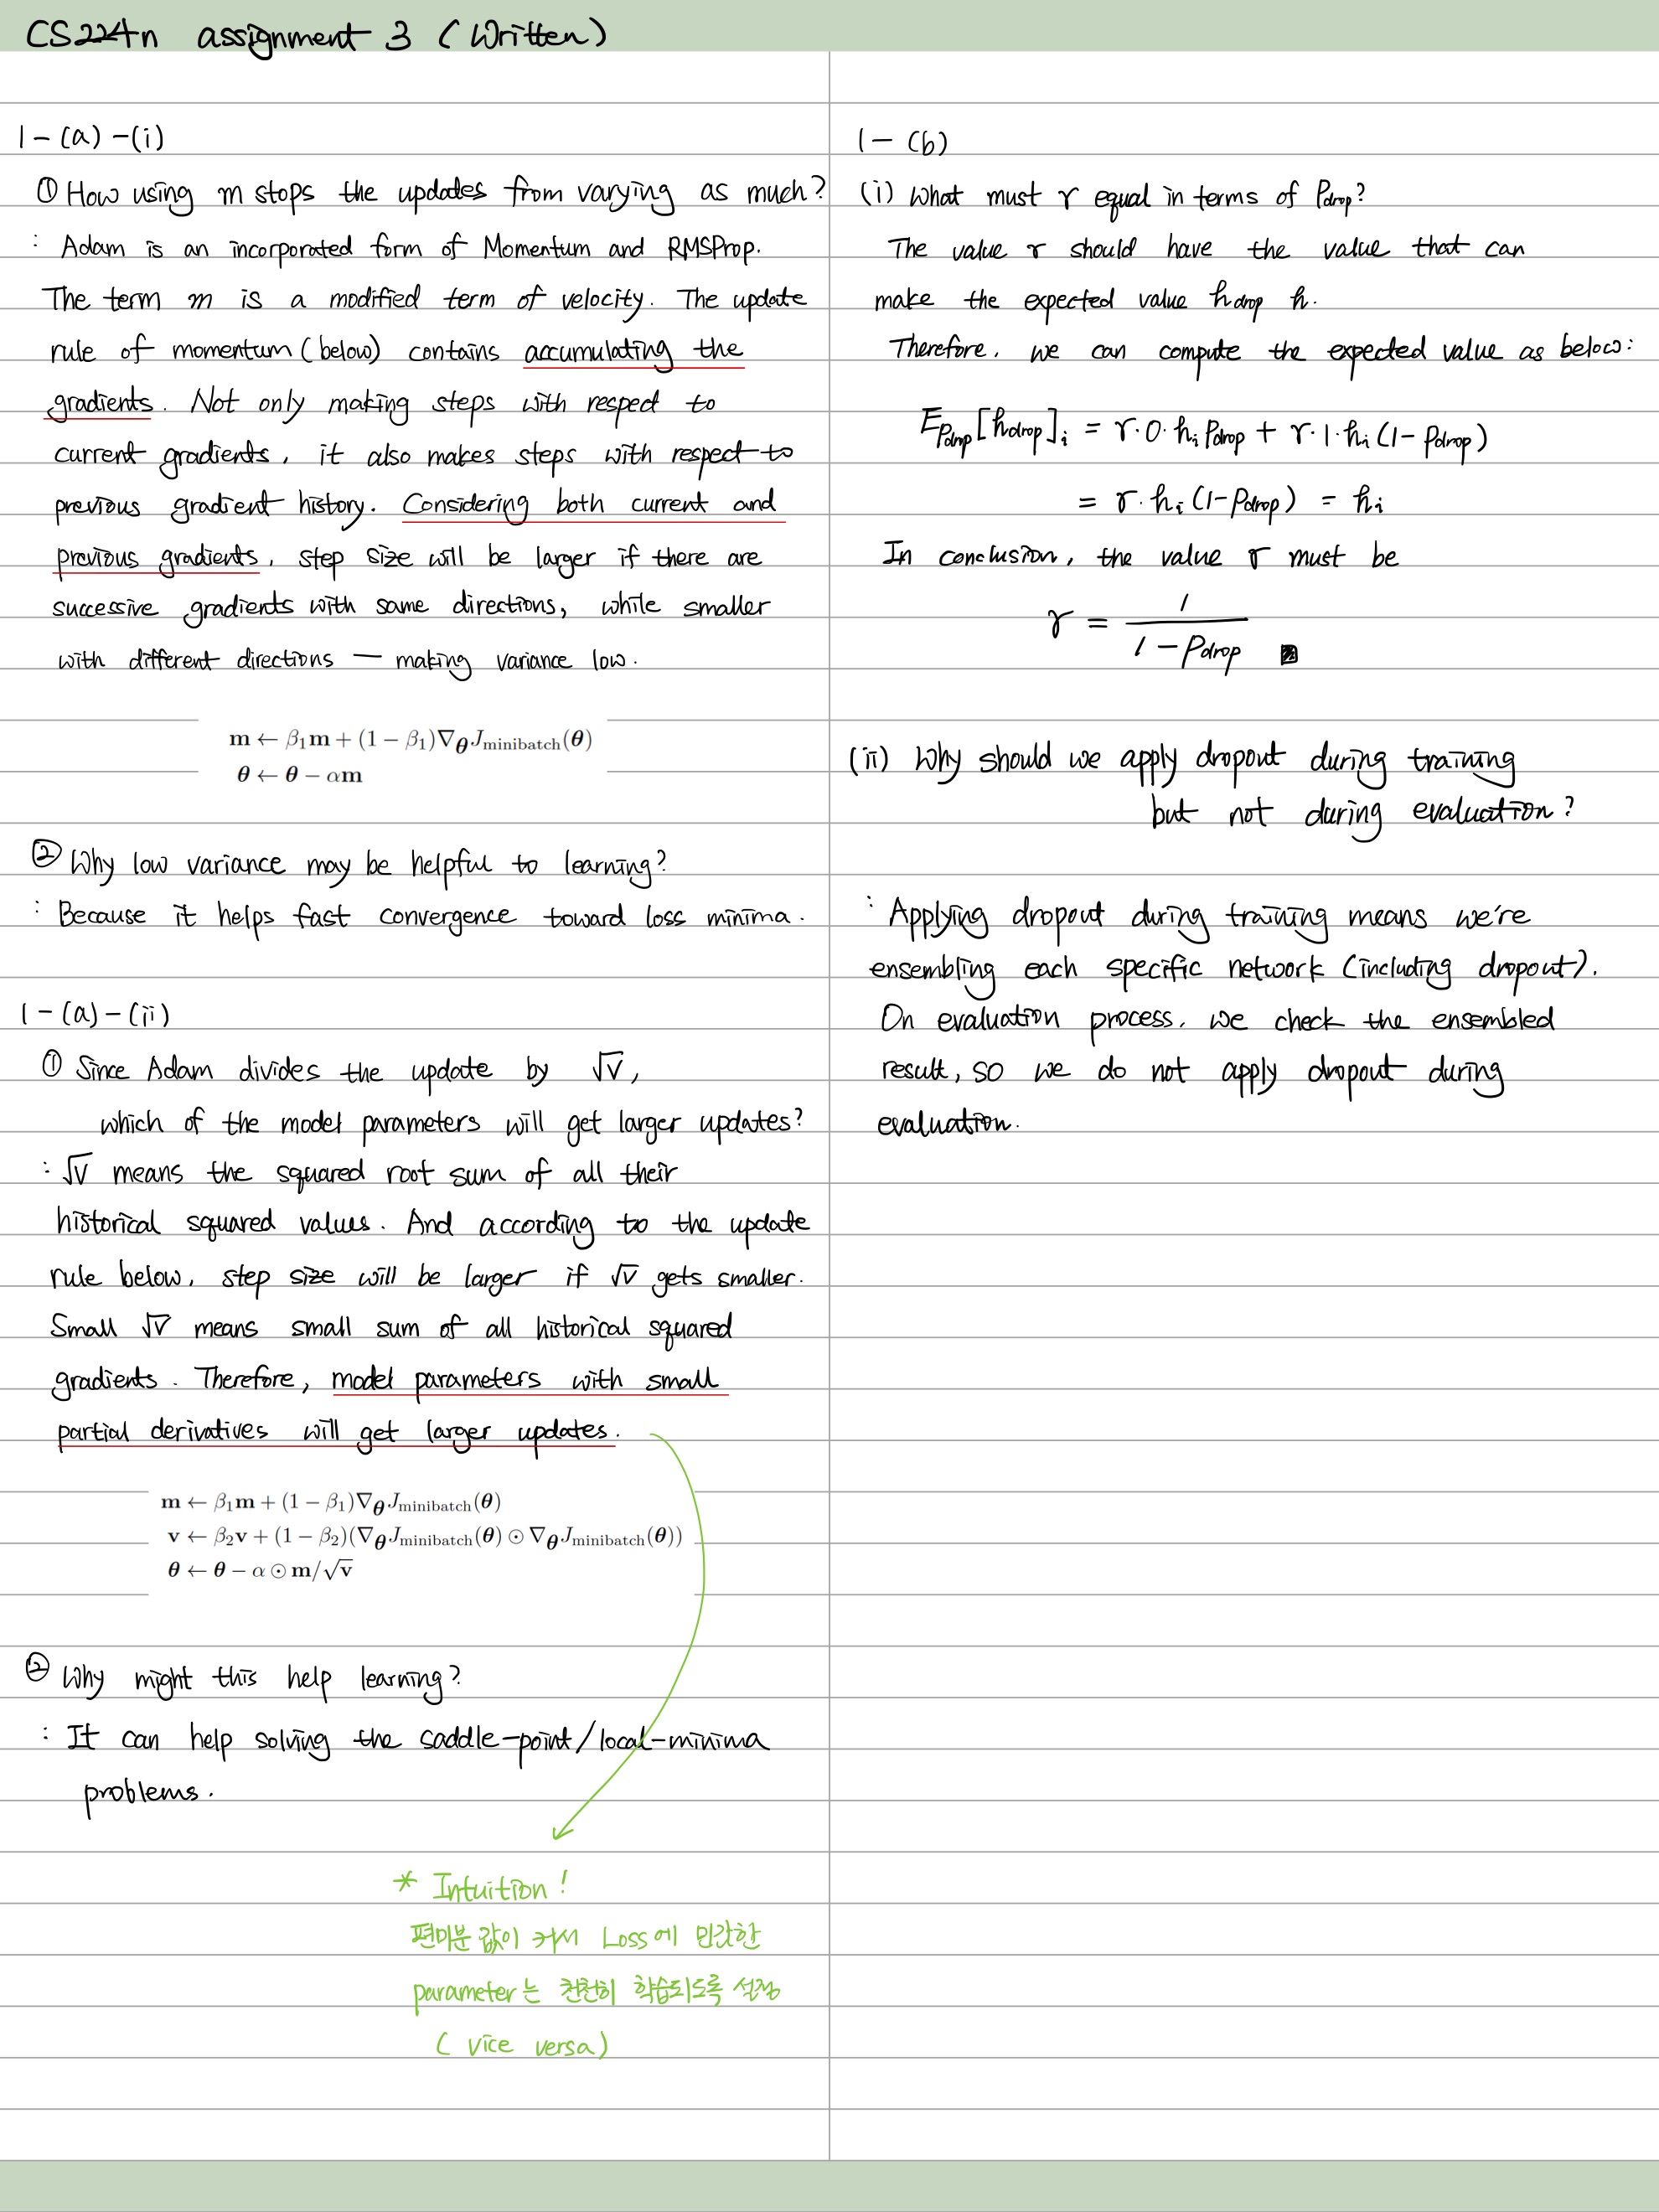 CS224n assignment 3 (Written)
1-(a)-(i)
① How using m stops the updates from varying as much?
: Adam is an incorporated form of Momentum and RMSProp.
The term m is a modified term of velocity. The update
rule of momentum (below) contains accumulating the
gradients. Not only making steps with respect to
current gradients, it also makes steps with respect to
previous gradient history. Considering both current and
previous gradients, step size will be larger if there are
successive gradients with same directions, while smaller
with different directions — making variance low.
m ← β₁m + (1 − β₁)∇_θ J_minibatch(θ)
θ ← θ − αm
② Why low variance may be helpful to learning?
: Because it helps fast convergence toward loss minima.
1-(a)-(ii)
① Since Adam divides the update by √v,
which of the model parameters will get larger updates?
: √v means the squared root sum of all their
historical squared values. And according to the update
rule below, step size will be larger if √v gets smaller.
Small √v means small sum of all historical squared
gradients. Therefore, model parameters with small
partial derivatives will get larger updates.
m ← β₁m + (1 − β₁)∇_θ J_minibatch(θ)
v ← β₂v + (1 − β₂)(∇_θ J_minibatch(θ) ⊙ ∇_θ J_minibatch(θ))
θ ← θ − α ⊙ m/√v
② Why might this help learning?
: It can help solving the saddle-point/local-minima
problems.
* Intuition!
편미분 값이 커서 Loss에 민감한
parameter는 천천히 학습되도록 설정
(vice versa)
1-(b)
(i) What must γ equal in terms of P_drop?
The value γ should have the value that can
make the expected value h_drop h.
Therefore, we can compute the expected value as below:
E_Pdrop[h_drop]_i = γ·0·h_i P_drop + γ·1·h_i(1-P_drop)
= γ·h_i(1-P_drop) = h_i
In conclusion, the value γ must be
γ = 1 / (1 - P_drop)
(ii) Why should we apply dropout during training
but not during evaluation?
: Applying dropout during training means we're
ensembling each specific network (including dropout).
On evaluation process, we check the ensembled
result, so we do not apply dropout during
evaluation.